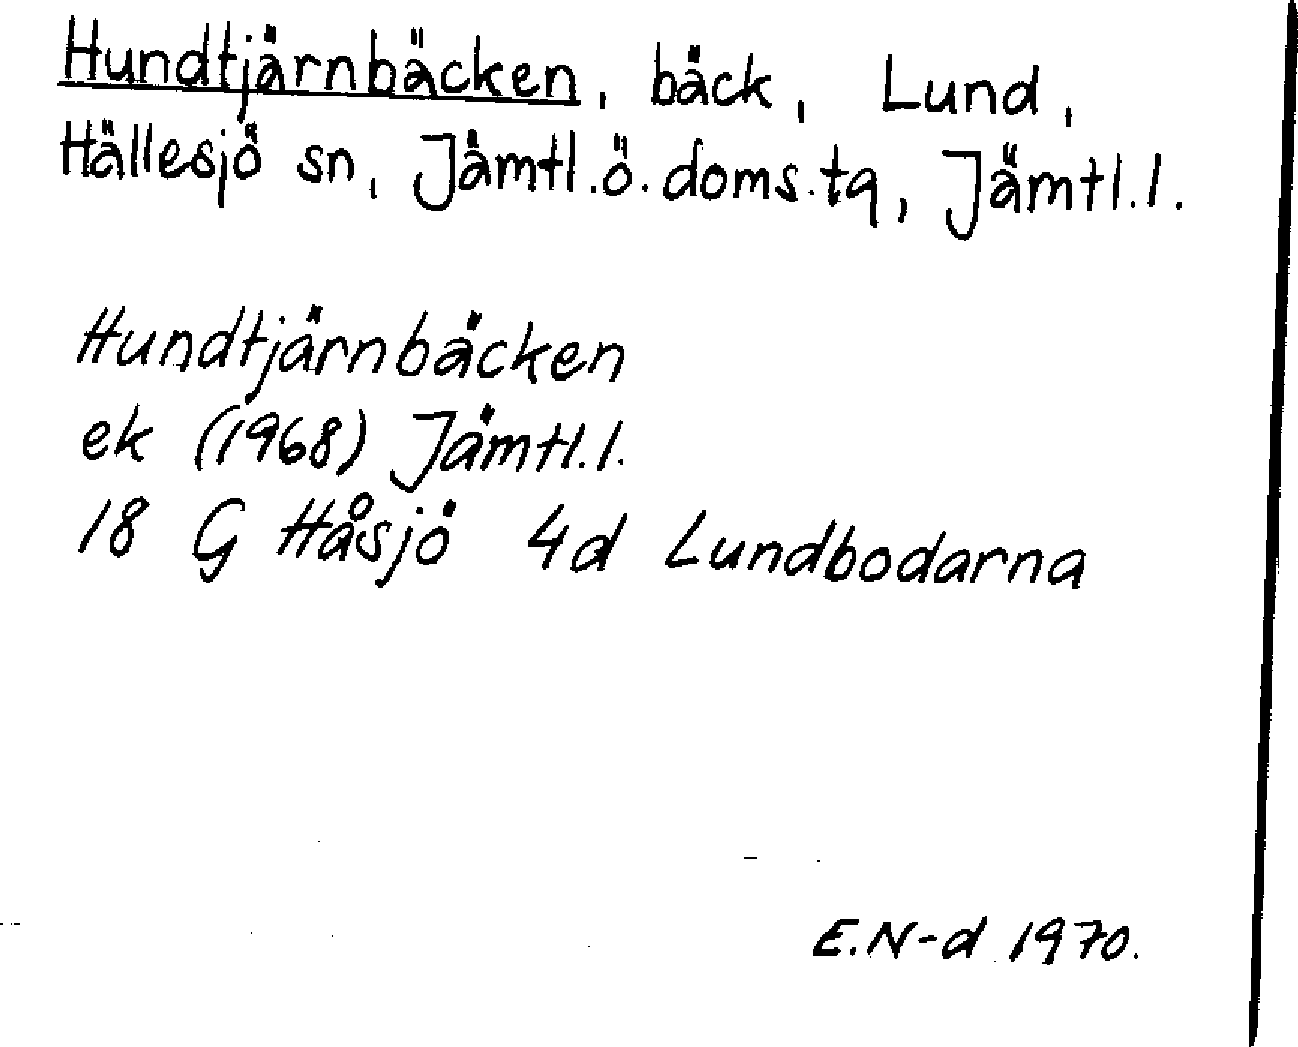 Hundtjärnbäcken, bäck, Lund,
Hällesjö sn, Jämtl.ö.doms.tg, Jämtl.l.
Hundtjärnbäcken
ek (1968) Jämtl.l.
18 G Håsjö 4d Lundbodarna
E.N-d 1970.